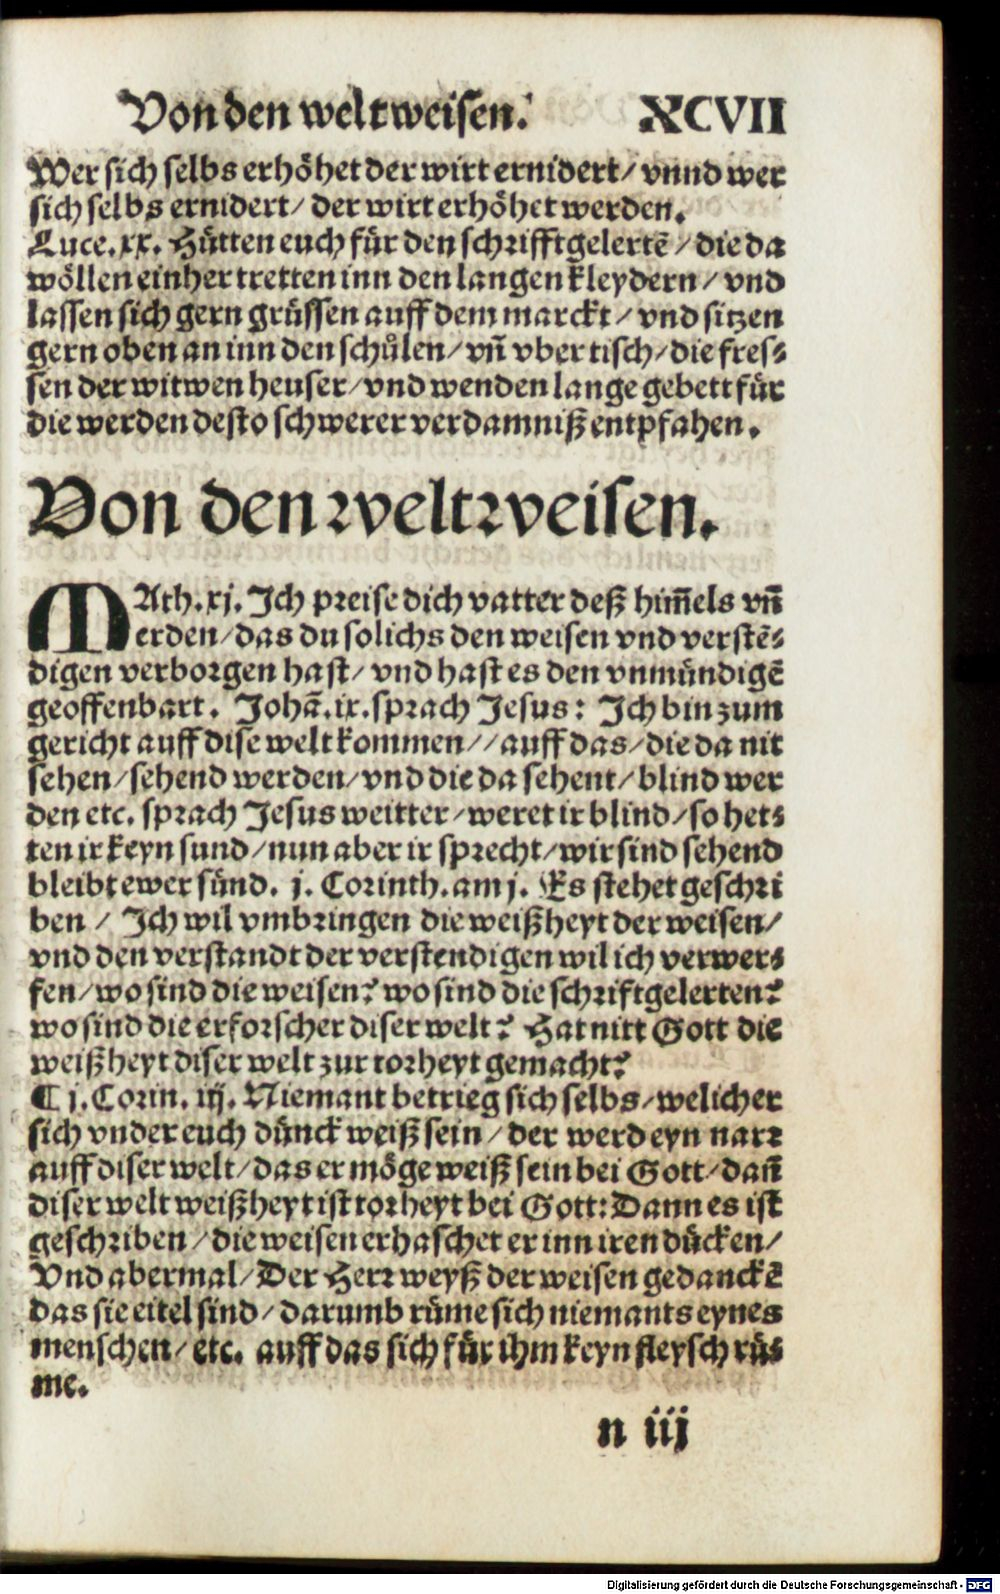 Von den weltweisen. XCVII
Wer sich selbs erhöhet der wirt ernidert / vnnd wer
sich selbs ernidert / der wirt erhöhet werden.
Luce. xx. Hütten euch für den schrifftgelertē / die da
wöllen einher tretten inn den langen kleydern / vnd
lassen sich gern grüssen auff dem marckt / vnd sitzen
gern oben an inn den schůlen / vn̄ vber tisch / die fres⸗
sen der witwen heuser / vnd wenden lange gebett für
die werden desto schwerer verdamniß entpfahen.
Von den weltweisen.
MAth. xj. Ich preise dich vatter deß him̄els vn̄
erden / das du solichs den weisen vnd verstē⸗
digen verborgen hast / vnd hast es den vnmündigē
geoffenbart. Johā. ix. sprach Jesus: Ich bin zum
gericht auff dise welt kommen / / auff das / die da nit
sehen / sehend werden / vnd die da sehent / blind wer
den etc. sprach Jesus weitter / weret ir blind / so het⸗
ten ir keyn sund / nun aber ir sprecht / wir sind sehend
bleibt ewer sünd. j. Corinth. am j. Es stehet geschri
ben / Ich wil vmbringen die weißheyt der weisen /
vnd den verstandt der verstendigen wil ich verwer⸗
fen / wo sind die weisen? wo sind die schriftgelerten?
wo sind die erforscher diser welt? Hat nitt Gott die
weißheyt diser welt zur torheyt gemacht?
¶ j. Corin. iij. Niemant betrieg sich selbs / welicher
sich vnder euch dünck weiß sein / der werd eyn narr
auff diser welt / das er möge weiß sein bei Gott / dan̄
diser welt weißheyt ist torheyt bei Gott: Dann es ist
geschriben / die weisen erhaschet er inn iren dücken /
Vnd abermal / Der Herr weyß der weisen gedanckē
das sie eitel sind / darumb rüme sich niemants eynes
menschen / etc. auff das sich für ihm keyn fleysch rü⸗
me.
n iij
Digitalisierung gefördert durch die Deutsche Forschungsgemeinschaft - DFG